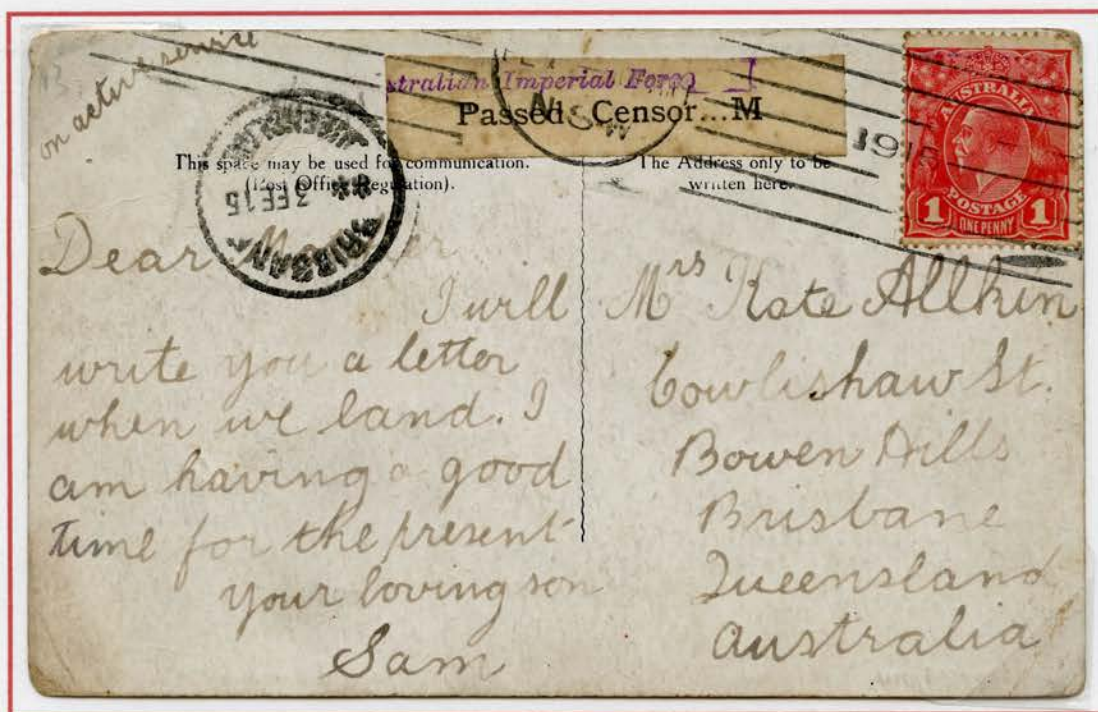 on active service
Australian Imperial Force
Passed Censor...M
This space may be used for communication.
(Post Office Regulation).
The Address only to be
written here.
BRISBANE
3 FE 15
QUEENSLAND
N.S.W
191
AUSTRALIA
POSTAGE
1 ONE PENNY 1
Dear
I will
write you a letter
when we land. I
am having a good
time for the present
your loving son
Sam
Mrs Kate Allkin
Cowlishaw St.
Bowen Hills
Brisbane
Queensland
Australia